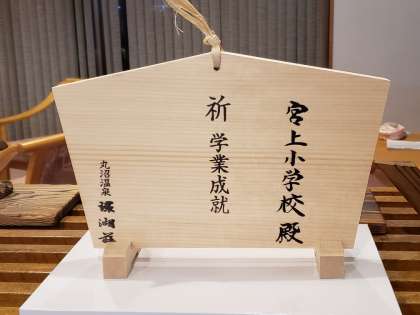 宮上小学校殿
祈 学業成就
丸沼温泉
環湖荘